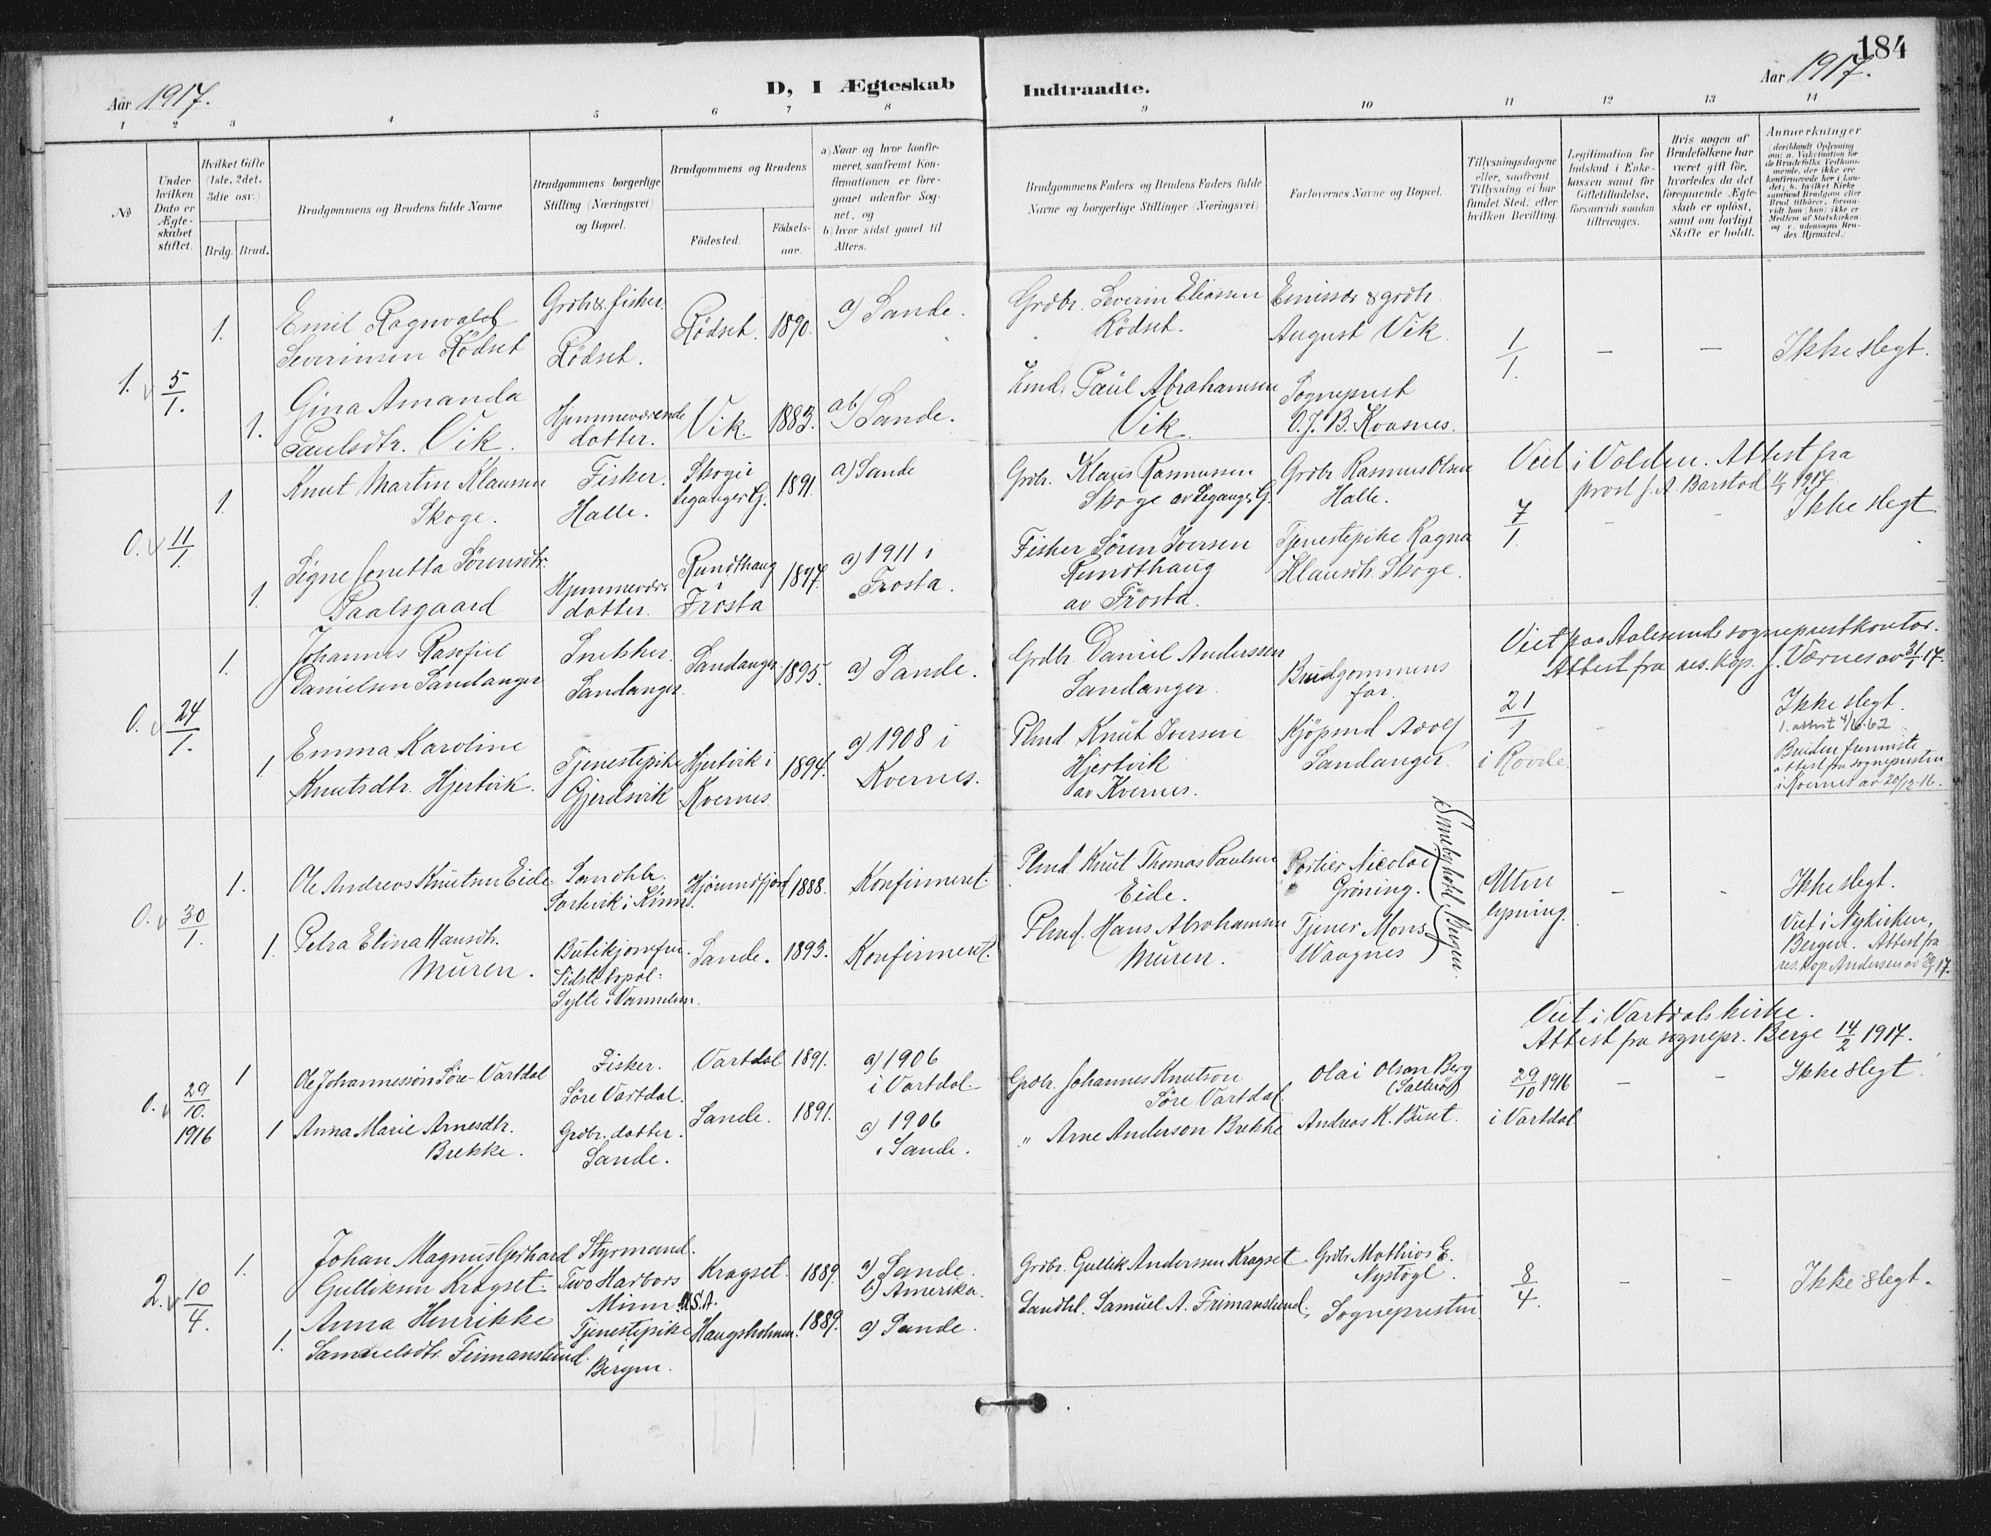 184
Aar 1917.
D, I Ægteskab Indtraadte.
Aar 1917.
1 2 3 4 5 6 7 8 9 10 11 12 13 14
No
Under hvilken Dato er Ægteskabet stiftet.
Hvilket Gifte (1ste, 2det, 3die osv.)
Brdg. Brud.
Brudgommens og Brudens fulde Navne
Brudgommens borgerlige Stilling (Næringsvei) og Bopæl.
Brudgommens og Brudens
Födested.
Födselsaar.
a) Naar og hvor konfirmeret, saafremt Konfirmationen er foregaaet udenfor Sognet, og
b) hvor sidst gaaet til Alters.
Brudgommens Faders og Brudens Faders fulde Navne og borgerlige Stillinger (Næringsvei)
Forlovernes Navne og Bopæl.
Tillysningsdagene eller, saafremt Tillysning ei har fundet Sted, efter hvilken Bevilling.
Legitimation for Indskud i Enkekassen samt for Giftetilladelse, forsaavidt saadan tiltrænges.
Hvis nogen af Brudefolkene har været gift før, hvorledes da det foregaaende Ægteskab er oplöst, samt om lovligt Skifte er holdt.
Anmerkninger
1. 5/1.
1. Emil Ragnvald
Severinsen Rødset
Grdbr & fisker.
Rødset.
Rødset. 1890. a) Sande.
Grdbr. Severin Eliassen
Rödset.
Emissær & grdbr.
August Vik.
1/1. — — Ikke slegt.
1. Gina Amanda
Paulsdtr. Vik.
Hjemmeværende
datter.
Vik. 1883. ab) Sande.
Kmd. Paul Abrahamsen
Vik.
Sogneprest
O. J. B. Kvasnes.
0. 11/1.
1. Knut Martin Klausen
Skoge.
Fisker.
Halle.
Skoge i
Leganger G. 1891. a) Sande
Grdbr. Klaus Rasmussen
Skoge av Leganger G.
Grdbr. Rasmus Olsen
Halle.
Viet i Volden. Attest fra
prost J. A. Barstad 11/1 1917.
7/1. - - Ikke slegt
1. Signe Jenetta Sørensdtr.
Paalsgaard
Hjemmevær.
datter.
Rundthaug
i
Frosta 1897. a) 1911 i
Frosta.
Fisker Sören Iversen
Rundthaug
av Frosta.
Tjenestepike Ragna
Klausdtr. Skoge.
0. 24/1.
1. Johannes
Danielsen Sandanger
Snekker.
Sandanger.
Sandanger. 1895. a) Sande.
Grdbr. Daniel Anderssen
Sandanger.
Brudgommens
far.
Viet paa Aalesunds sogneprestkontor.
Attest fra res. kap. J. Værnes av 31/1 17.
21/1
i Rovde.
Ikke slegt.
1. attest 4/6.62
Bruden fremviste
attest fra sognepresten
i Kvernes av 20/12-16.
1. Emma Karoline
Knutsdtr. Hjertvik.
Tjenestepike
Gjerdsvik
Hjertvik i
Kvernes. 1894. a) 1908 i
Kvernes.
Plmd Knut Iversen
Hjertvik
av Kvernes.
Kjöpmd Adolf
Sandanger.
0. 30/1.
1. Ole Andreas Knutsen Eide.
Landhl.
i Kinn.
Hjørundfjord 1888. Konfirmeret.
Plmd. Knut Thomas Paulsen
Eide.
Portier Nicolai
Gröning.
Bergen.
Uten
lysning.
- - Ikke slegt.
Viet i Nykirken,
Bergen. Attest fra
res. kap. Andersen av 30/1 17.
1. Petra Elina Hansdtr.
Muren.
Butikjomfru.
Sidste bopæl:
Sylte i Vannelven.
Sande. 1893. Konfirmeret.
Plmd. Hans Abrahamsen
Muren.
Tjener Mons
Waagnes
0. 29/10. 1916
1 Ole Johannesson Søre-Vartdal
Fisker.
Søre Vartdal.
Vartdal 1891. a) 1906
i Vartdal.
Grdbr. Johannes Knutson
Søre Vartdal.
Olai Olsen Berg
Viet i Vartdals kirke.
Attest fra sognepr. Berge 14/2 1917.
29/10 1916
i Vartdal
- - Ikke slegt.
1 Anna Marie Arnesdtr.
Brekke.
Grdbr. datter.
Sande.
Sande. 1891. a) 1906
i Sande.
" Arne Anderson Brekke
Andreas K. Buset.
2. 10/4.
1. Johan Magnus Gerhard
Gulliksen Kragset.
Styrmand.
Two Harbors
Minn. U.S.A.
Kragset. 1889. a) Sande.
b) Amerika.
Grdbr. Gullik Anderssen Kragset
Grdbr. Mathias E.
Nystøyl.
8/4. - - Ikke slegt.
1. Anna Henrikke
Samuelsdtr. Frimanslund.
Tjenestepike
i
Bergen.
Haugsholmen. 1889. a) Sande.
Landhl. Samuel A. Frimanslund.
Sognepresten